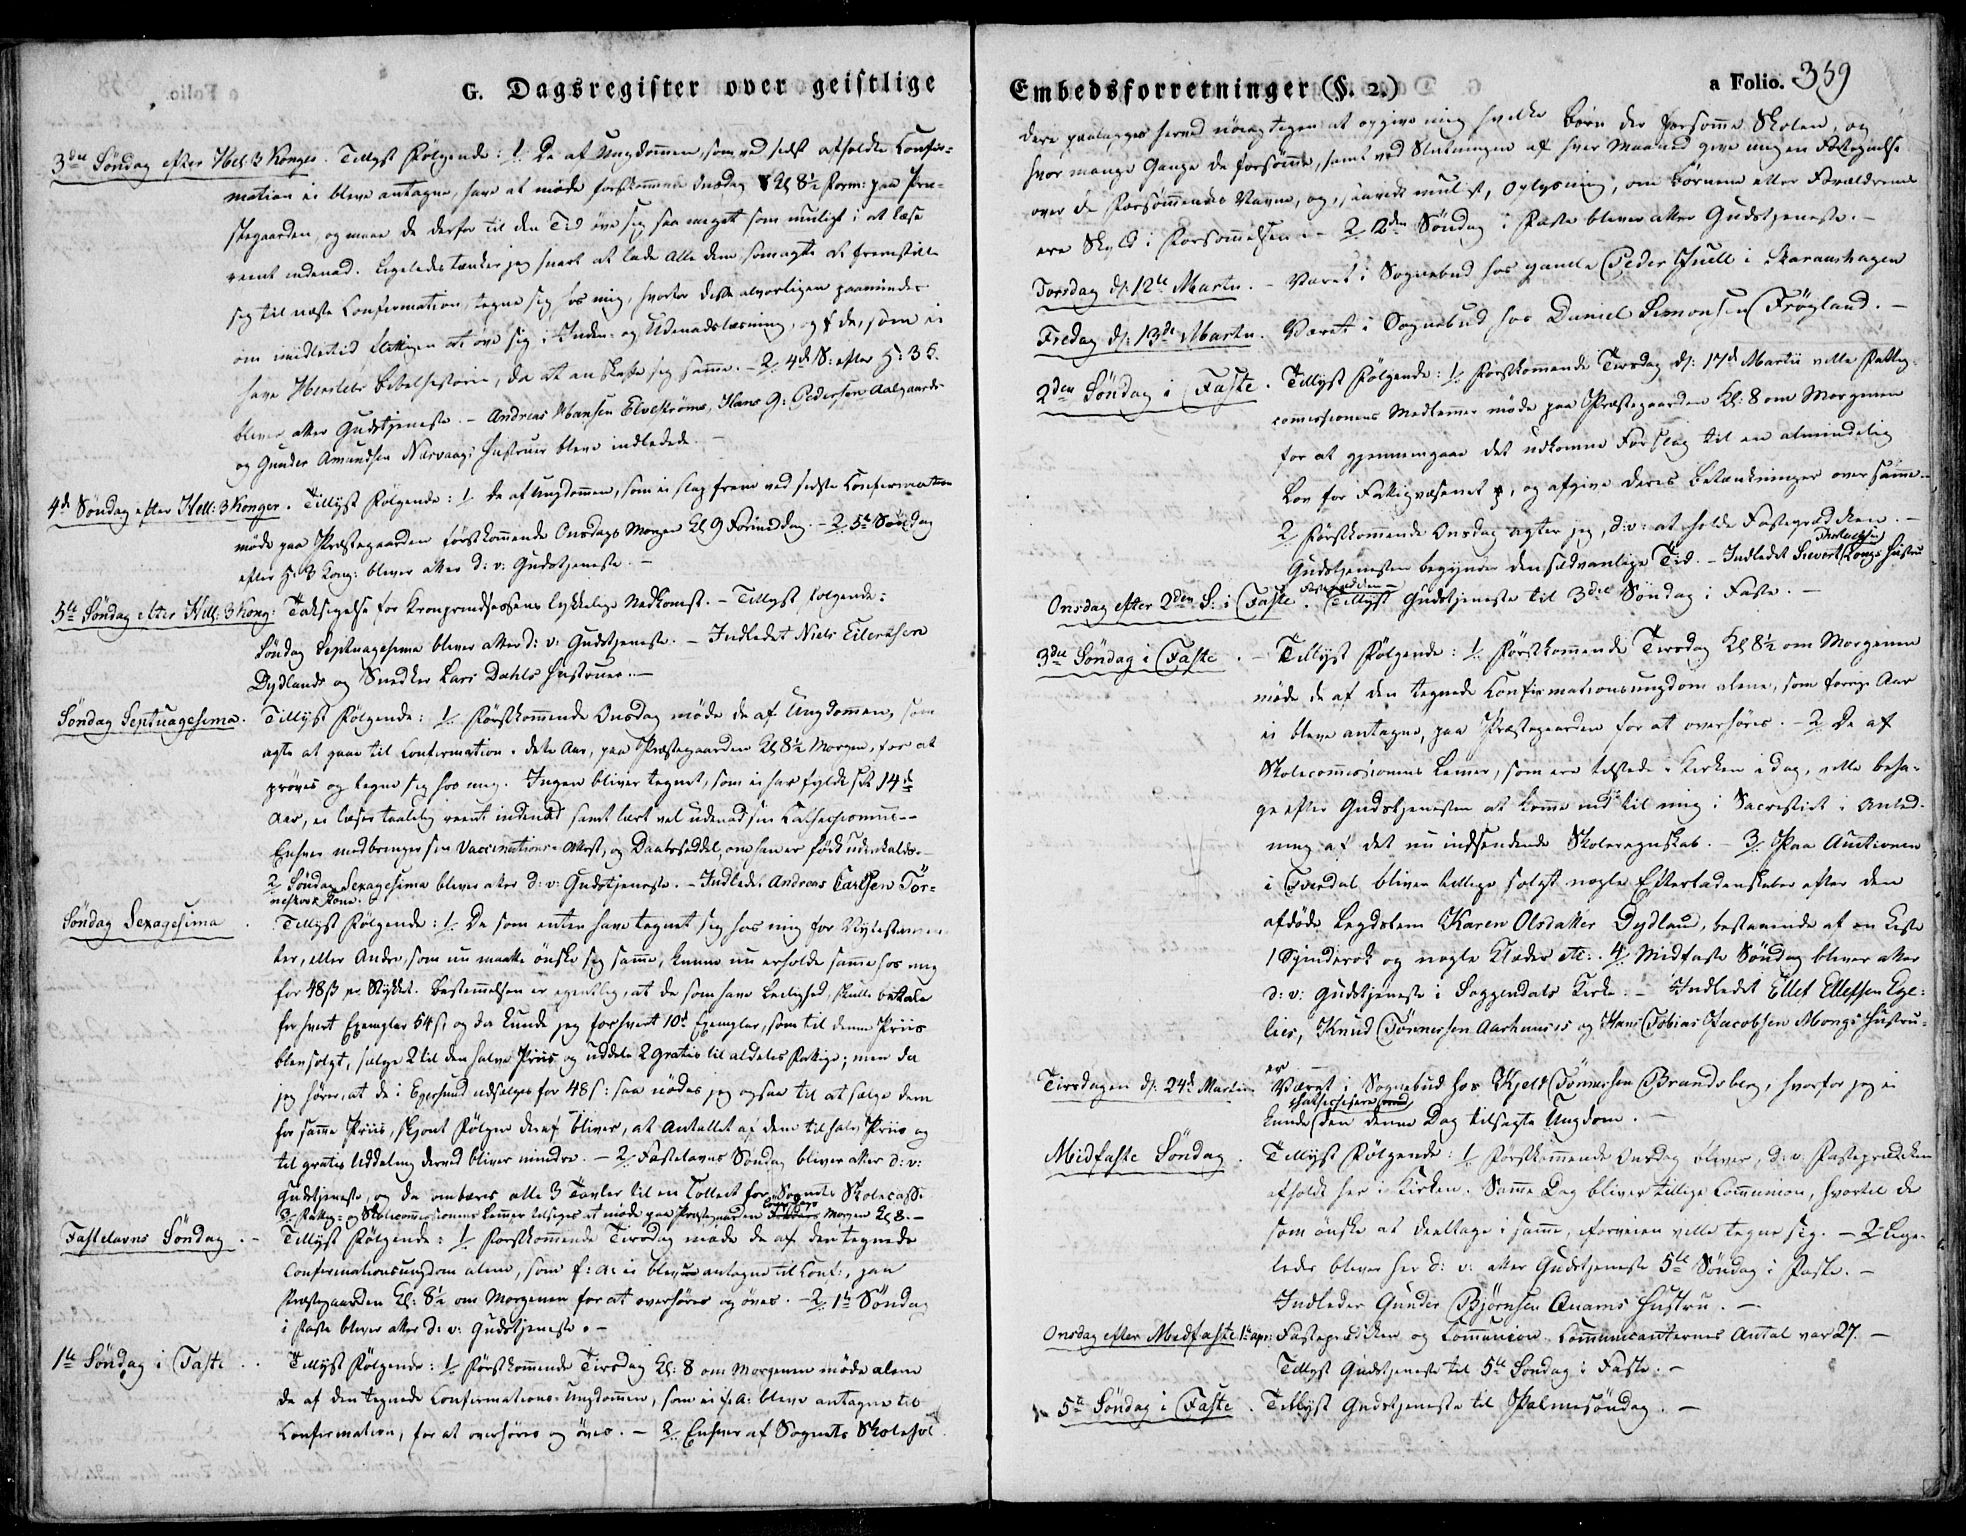 G. Dagsregister over geistlige
3die Søndag efter Hel. 3 Konger. Tillyst Følgende: 1/ De af Ungdommen, som ved sidst afholdte Confir-
mation ei bleve antagne, have at møde førstkommende Onsdag Kl 8½ Form: paa Præ-
stegaarden, og maae de derfor til den Tid øve sig saa meget som muligt i at læse
reent indenad. Ligeledes tænker jeg snart at lade alle dem, som agte at fremstille
sig til næste Confirmation, tegne sig hos mig, hvorfor disse alvorligen paamindes
om imidlertid flittigen at øve sig i Inden- og Udenadslæsning, og de, som ei
have Herslebs Bibelhistorie, da at anskaffe sig samme. - 2/ 4de S: efter H: 3 K.
bliver atter Gudstjeneste. - Andreas Hansen Elvestrøms, Hans G: Pedersen Aalgaards
og Gunder Amundsen Nærvaags Hustruer bleve indledede. -
4de Søndag efter Hell: 3 Konger. Tillyst Følgende: 1/ De af Ungdommen, som ei slap frem ved sidste Confirmation
møde paa Præstegaarden førstkommende Onsdags Morgen Kl 9 Formiddag. - 2/ 5te Søndag
efter H: 3 Kong: bliver atter d: v: Gudstjeneste. -
5te Søndag efter Hell: 3 Kong: Taksigelse for Kronprindsessens lykkelige Nedkomst. - Tillyst Følgende:
Søndag Septuagesima bliver atter d: v: Gudstjeneste. - Indledet Niels Eilertsen
Dydlands og Snedker Lars Dahls Hustruer. -
Søndag Septuagesima. Tillyst Følgende: 1/ Førstkommende Onsdag møde de af Ungdommen, som
agte at gaae til Confirmation dette Aar, paa Præstegaarden Kl 8½ Morgen, for at
prøves og tegne sig hos mig. Ingen bliver tegnet, som ei har fyldt sit 14de
Aar, ei læser taalelig reent indenad samt lært vel udenad sin Cathechismus. -
Enhver medbringer sin Vaccinations-Attest, og Daabsseddel, om han er født udensogns. -
2/ Søndag Sexagesima bliver atter d: v: Gudstjeneste. - Indledet Andreas Carlsen Tør-
nes Kone.
Søndag Sexagesima. Tillyst Følgende: 1/ De som enten have tegnet sig hos mig for Nytestamen-
ter, eller Andre, som nu maatte ønske sig samme, kunne nu erholde samme hos mig
for 48 ß pr Stykket. Bestemmelsen er egentlig, at de som have Leilighed, skulle betale
for hvert Exemplar 54 ß, og da kunde jeg for hvert 10de Exemplar, som til denne Priis
blev solgt, sælge 2 til den halve Priis og uddele 2 gratis til aldeles Fattige; men da
jeg hører, at de i Egersund udsælges for 48 ß: saa nødes jeg ogsaa til at sælge dem
for samme Priis, skjønt Følgen deraf bliver, at Antallet af dem til halv Priis og
til gratis Uddeling derved bliver mindre. - 2/ Fastelavns Søndag bliver atter d: v:
Gudstjeneste, og da ombæres alle 3 Tavler til en Collect for Sognets Skolecasse
3/ Fattig- og Skolecommissionens Lemmer tilsiges at møde paa Præstegaarden Morgen Kl 8. -
Fastelavns Søndag. - Tillyst Følgende: 1/ Førstkommende Tirsdag møde de af den tegnede
Confirmationsungdom alene, som f: A: ei bleve antagne til Conf:, paa
Præstegaarden Kl: 8½ om Morgenen for at overhøres og øves. - 2/ 1te Søndag
i Faste bliver atter d: v: Gudstjeneste. -
1te Søndag i Faste. Tillyst Følgende: 1/ Førstkommende Tirsdag Kl: 8 om Morgenen møde alene
de af den tegnede Confirmations-Ungdommen, som ei f: A: bleve antagne til
Confirmation, for at overhøres og øves. - 2/ Enhver af Sognets Skolehol
Embedsforretninger (§. 2.)
a Folio. 359
dere paalægges herved nøiagtigen at opgive mig hvilke Børn der forsømme Skolen, og
hvor mange Gange de forsømme, samt ved Slutningen af hver Maaned give mig en Fortegnelse
over de Forsømmendes Navne, og, saavidt muligt, Oplysning, om Børnene eller Forældrene
ere Skyld i Forsømmelsen. - 2/ 2den Søndag i Faste bliver atter Gudstjeneste. -
Torsdag d: 12te Martii. - Været i Sognebud hos gamle Peder Juell i Skaranshagen
Fredag d: 13de Martii. Været i Sognebud hos Daniel Simonsen Frøyland. -
2den Søndag i Faste. Tillyst Følgende: 1/ Førstkommende Tirsdag d: 17de Martii ville Fattig-
comissionens Medlemmer møde paa Præstegaarden Kl: 8 om Morgenen
for at gjennemgaae det udkomne Forslag til en almindelig
Lov for Fattigvæsenet, og afgive deres Betænkninger over samme. -
2/ Førstkommende Onsdag agter jeg, d: v: at holde Fasteprædiken. -
Gudstjenesten begynder den sædvanlige Tid. - Indledet Sivert Tronds Hustru
Onsdag efter 2den S: i Faste. Fasteprædiken - Tillyst Gudstjeneste til 3die Søndag i Faste. -
3die Søndag i Faste. - Tillyst Følgende: 1/ Førstkommende Tirsdag Kl 8½ om Morgenen
møde de af den tegnede Confirmationsungdom alene, som forrige Aar
ei bleve antagne, paa Præstegaarden for at overhøres. - 2/ De af
Skolecommissionens Lemmer, som ere tilstede i Kirken idag, ville beha-
ge efter Gudstjenesten at komme ind til mig i Sacristiet i Anled-
ning af det nu indsendende Skoleregnskab. - 3/ Paa Auctionen
i Tverdal bliver tillige solgt nogle Efterladenskaber efter den
afdøde Lægdslem Karen Olsdatter Dydland, bestaaende af en Kiste
1 Spinderok og nogle Klæder etc: 4/ Midfaste Søndag bliver atter
d: v: Gudstjeneste i Soggendals Kirke. - Indledet Ellef Ellefsen Ege-
lies, Knud Tønnesen Aarhuuses og Hans Tobias Jacobsen Mongs Hustru-
er
Tirsdagen d: 24de Martii. Været i Sognebud hos Kjeld Tønnesen Brandsberg, hvorfor jeg ei
kunde Cathechisere den denne Dag tilsagte Ungdom. -
Midfaste Søndag. Tillyst Følgende: 1/ Førstkommende Onsdag bliver, d: v: Fasteprædiken
afholdt her i Kirken. Samme Dag bliver tillige Communion, hvortil de
som ønske at deeltage i samme, iforveien ville tegne sig. - 2/ Lige-
ledes bliver her d: v: atter Gudstjeneste 5te Søndag i Faste. -
Indledet Gunder Bjørnsen Qvams Hustru. -
Onsdag efter Midfaste 1te Apr: Fasteprædiken og Communion. Communicanternes Antal var 27. -
Tillyst Gudstjeneste til 5te Søndag i Faste. -
5te Søndag i Faste. Tillyst Gudstjeneste til Palmesøndag. -